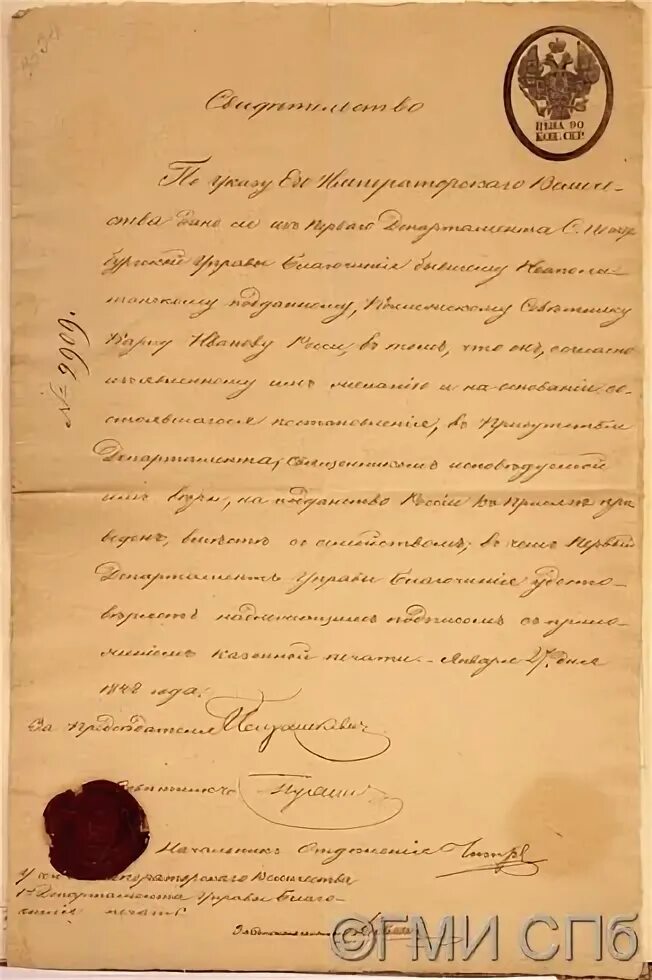 Свидѣтельство
ЦѢНА 90
КОП. СЕР.
По указу Его Императорскаго Величе-
ства дано сіе изъ Перваго Департамента С. Петер
бургской Управы Благочинія бывшему Неаполи-
танскому подданному, Коллежскому Совѣтнику
Карлу Иванову Росси, въ томъ, что онъ, согласно
изъявленному имъ желанію и на основаніи со-
стоявшагося постановленія, въ Присутствіи
Департамента, Священникомъ исповѣдуемой
имъ вѣры, на подданство Россіи къ присягѣ при
веденъ, вмѣстѣ съ семействомъ; въ чемъ Первый
Департаментъ Управы Благочинія удосто-
вѣряетъ надлежащимъ подписомъ съ прило-
женіемъ казенной печати. Января 27 дня
1848 года.
№ 9909.
За Предсѣдателя
Начальникъ Отдѣленія
У Императорскаго Величества
1го Департамента Управы Благо-
чинія печать
©ГМИ СПб